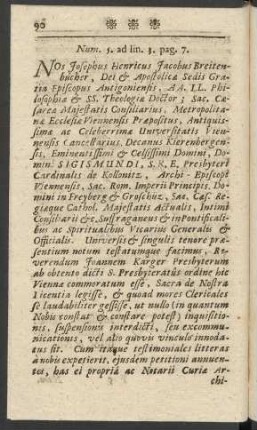 90
Num. 5. ad lin. 3. pag. 7.
NOs Josephus Henricus Jacobus Breiten-
bücher, Dei & Apostolica Sedis Gra-
tia Episcopus Antigoniensis, AA. LL. Phi-
losophia & SS. Theologia Doctor; Sac. Cæ-
sarea Majestatis Consiliarius, Metropolita-
na Ecclesia Viennensis Præpositus, Antiquis-
sima ac Celeberrima Universitatis Vien-
nensis Cancellarius, Decanus Kierenbergen-
sis, Eminentissimi & Celsissimi Domini, Do-
min. SIGISMUNDI, S. R. E. Presbyteri
Cardinalis de Kollonitz, Archi-Episcopi
Viennensis, Sac. Rom. Imperii Principis, Do-
mini in Freyberg & Groslütz, Sac. Cæs. Re-
giæque Cathol. Majestatis Actualis, Intimi
Consiliarii &c. Suffraganeus & in Pontificali-
bus ac Spiritualibus Vicarius Generalis &
Officialis. Universis & singulis tenore præ-
sentium notum testatumque facimus, Re-
verendum Joannem Karger Presbyterum
ab obtento dicti S. Presbyteratûs ordine hic
Vienna commoratum esse, Sacra de Nostra
Licentia legisse, & quoad mores Clericales
se laudabiliter gessisse, ut nullo (in quantum
Nobis constat & constare potest) inquisitio-
nis, suspensionis interdicti, seu excommu-
nicationis, vel alio quovis vinculo innoda-
tus sit. Cum itaque testimoniales litteras
à nobis expetierit, ejusdem petitioni annuen-
tes, has ei propriâ ac Notarii Curia Ar-
chi-